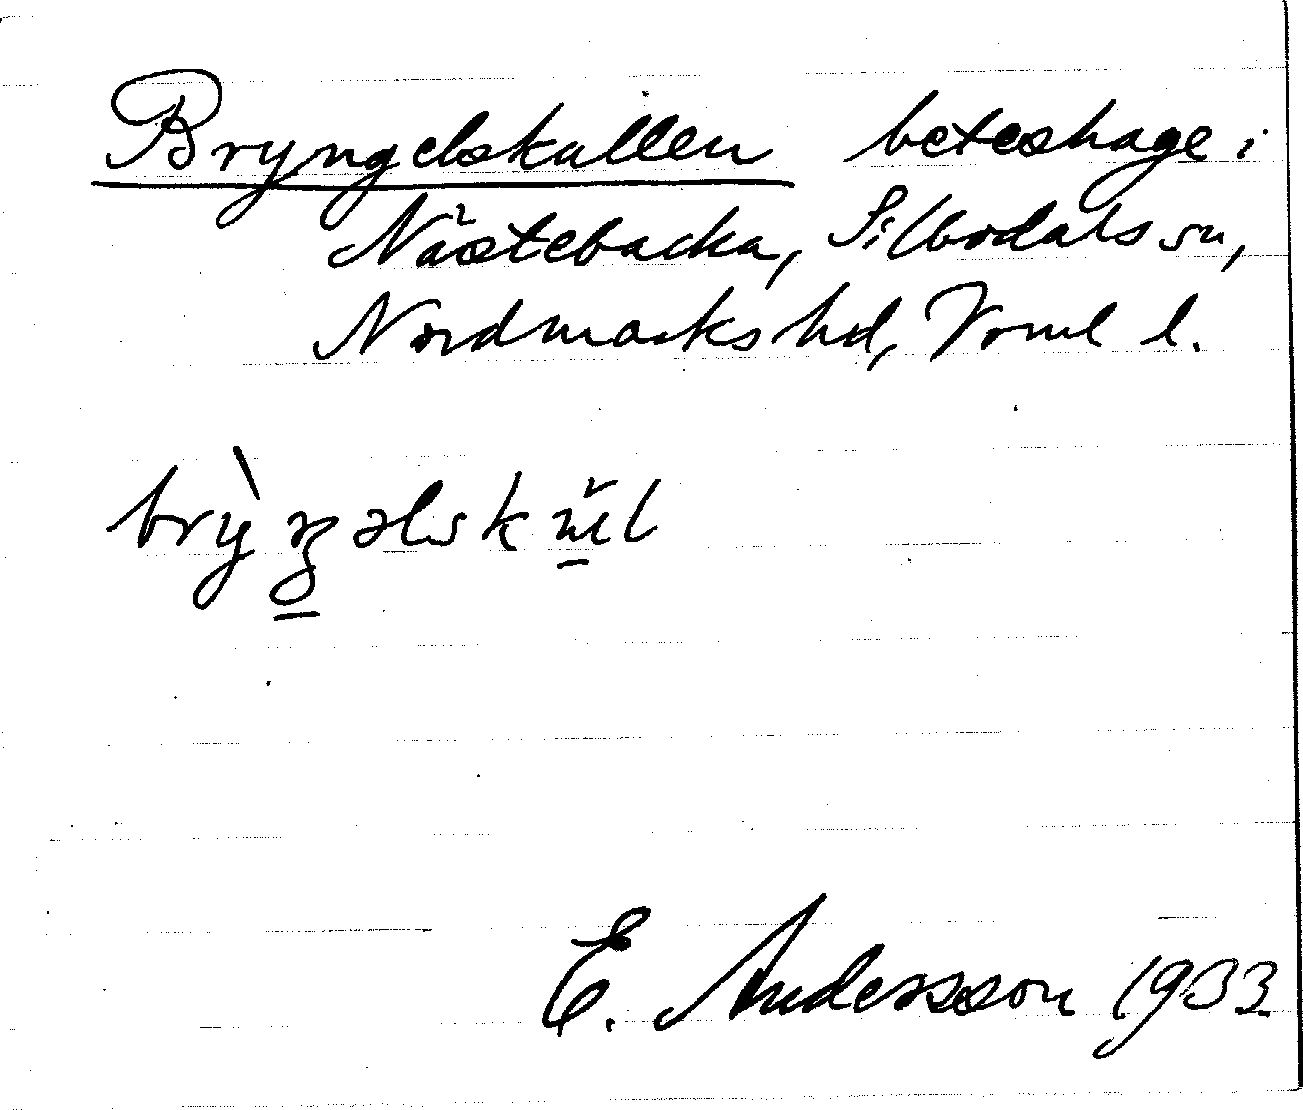 Bryngelskullen beteshage i
Nästebacka, Silbodals sn,
Nordmarks hd, Vrml l.
E. Andersson 1933